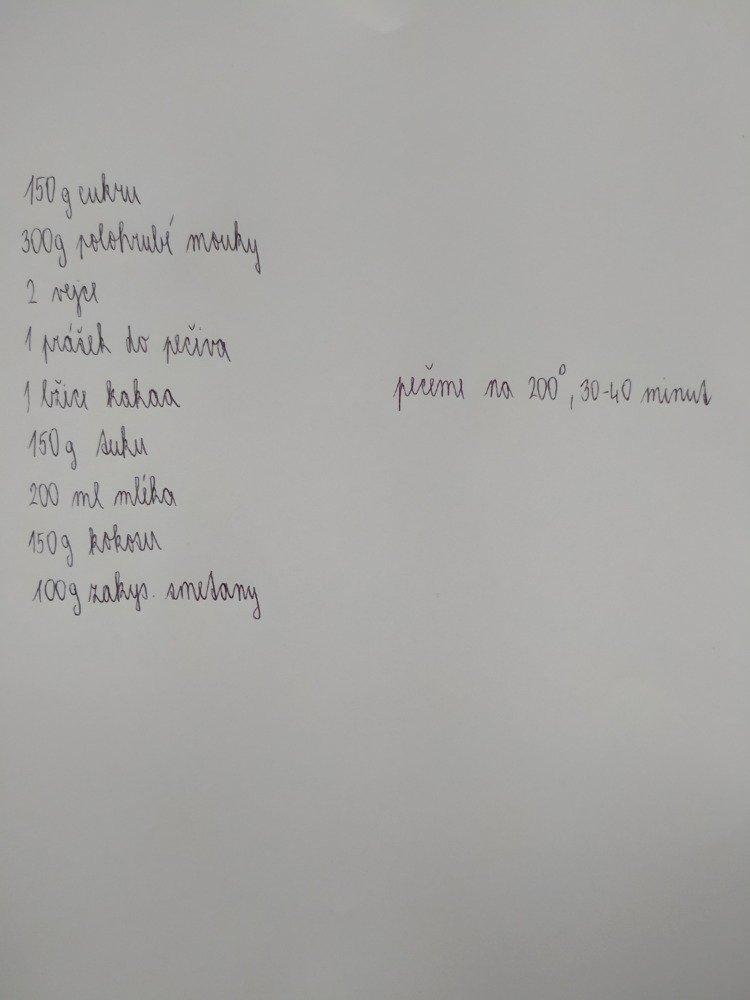 150g cukru
300g polohrubé mouky
2 vejce
1 prášek do pečiva
1 lžíce kakaa
150g tuku
200 ml mléka
150g kokosu
100g zakys. smetany
pečeme na 200°, 30-40 minut